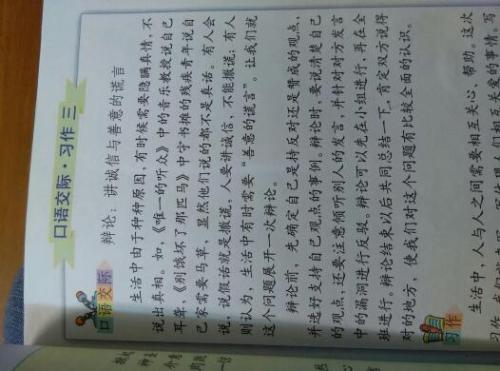 口语交际·习作三
口语交际
辩论：讲诚信与善意的谎言
生活中由于种种原因，有时候需要隐瞒真情，不
说出真相。如，《唯一的听众》中的音乐教授说自己
耳聋，《别饿坏了那匹马》中守书摊的残疾青年说自
己家需要马草，显然他们说的都不是真话。有人会
说，说假话就是撒谎，人要讲诚信，不能撒谎；有人
则认为，生活中有时需要“善意的谎言”。让我们就
这个问题展开一次辩论。
辩论前，先确定自己是持反对还是赞成的观点，
并选好支持自己观点的事例。辩论时，要说清楚自己
的观点，还要注意倾听别人的发言，并针对对方发言
中的漏洞进行反驳。辩论可以先在小组进行，再在全
班进行。辩论结束以后共同总结一下，肯定双方说得
对的地方，使我们对这个问题有比较全面的认识。
习作
生活中，人与人之间需要相互关心、帮助。这次